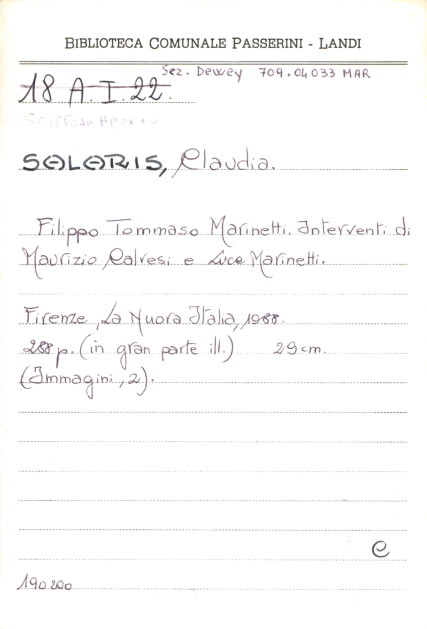 BIBLIOTECA COMUNALE PASSERINI - LANDI
Sez. Dewey 709.04033 MAR
18 A.I.22.
SALARIS, Claudia.
Filippo Tommaso Marinetti. Interventi di
Maurizio Calvesi e Luce Marinetti.
Firenze, La Nuova Italia, 1988.
288 p. (in gran parte ill.) 29 cm.
(Immagini, 2).
C
190200